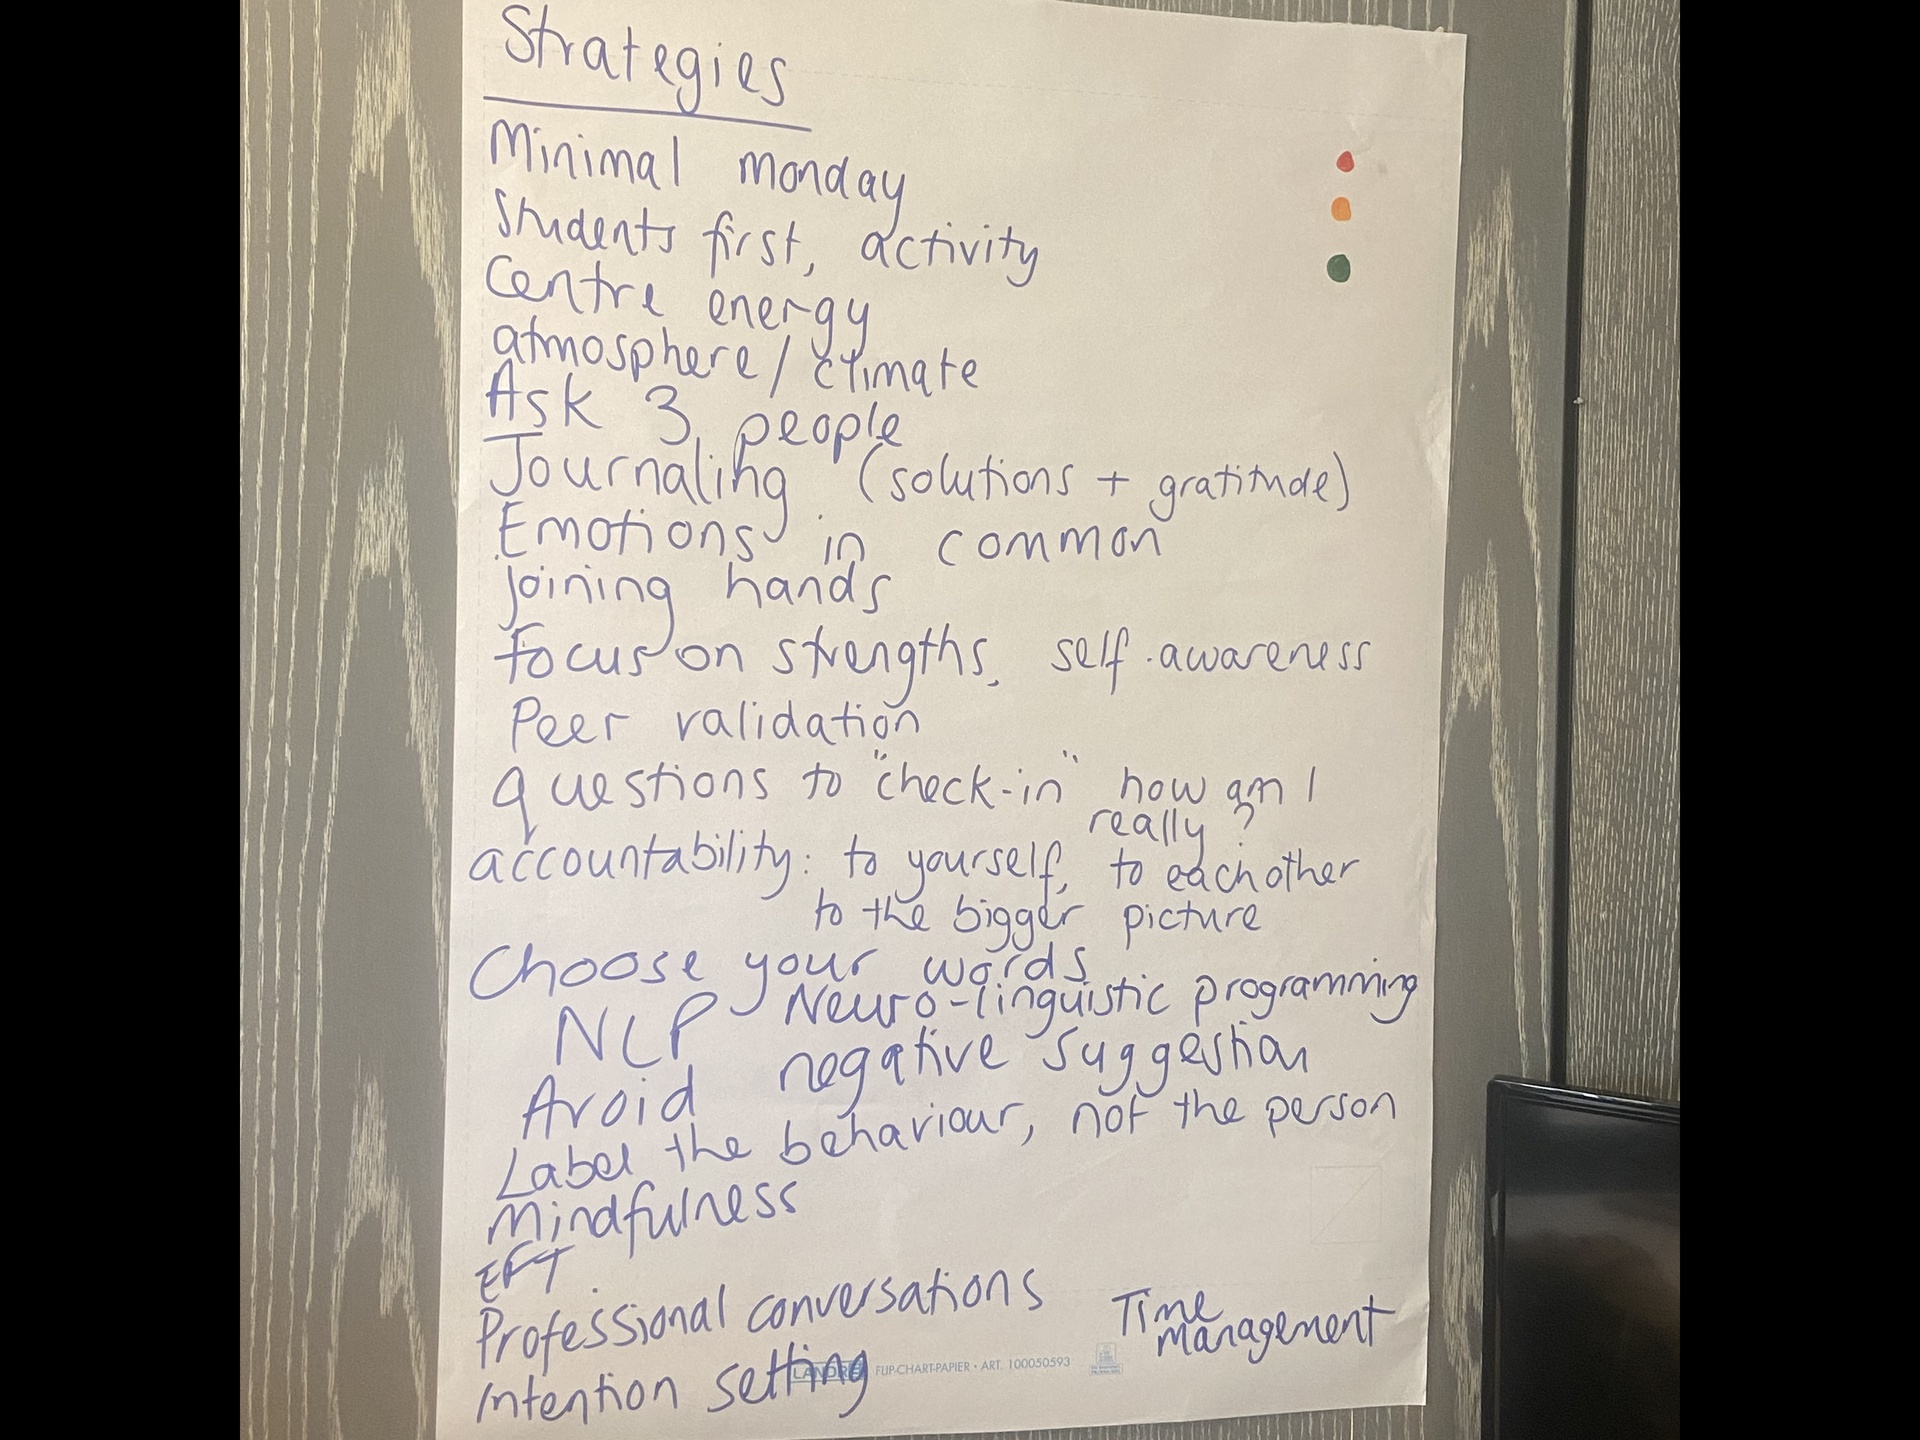 Strategies
Minimal monday
Students first, activity
Centre energy
atmosphere / climate
Ask 3 people
Journaling (solutions + gratitude)
Emotions in common
joining hands
Focus on strengths, self-awareness
Peer validation
questions to "check-in" how am I
really?
accountability: to yourself, to eachother
to the bigger picture
Choose your words
NLP Neuro-linguistic programming
Avoid negative suggestion
Label the behaviour, not the person
Mindfulness
EFT
Professional conversations
Time
management
Intention setting
LANDRÉ FLIP-CHART-PAPIER • ART. 100050593